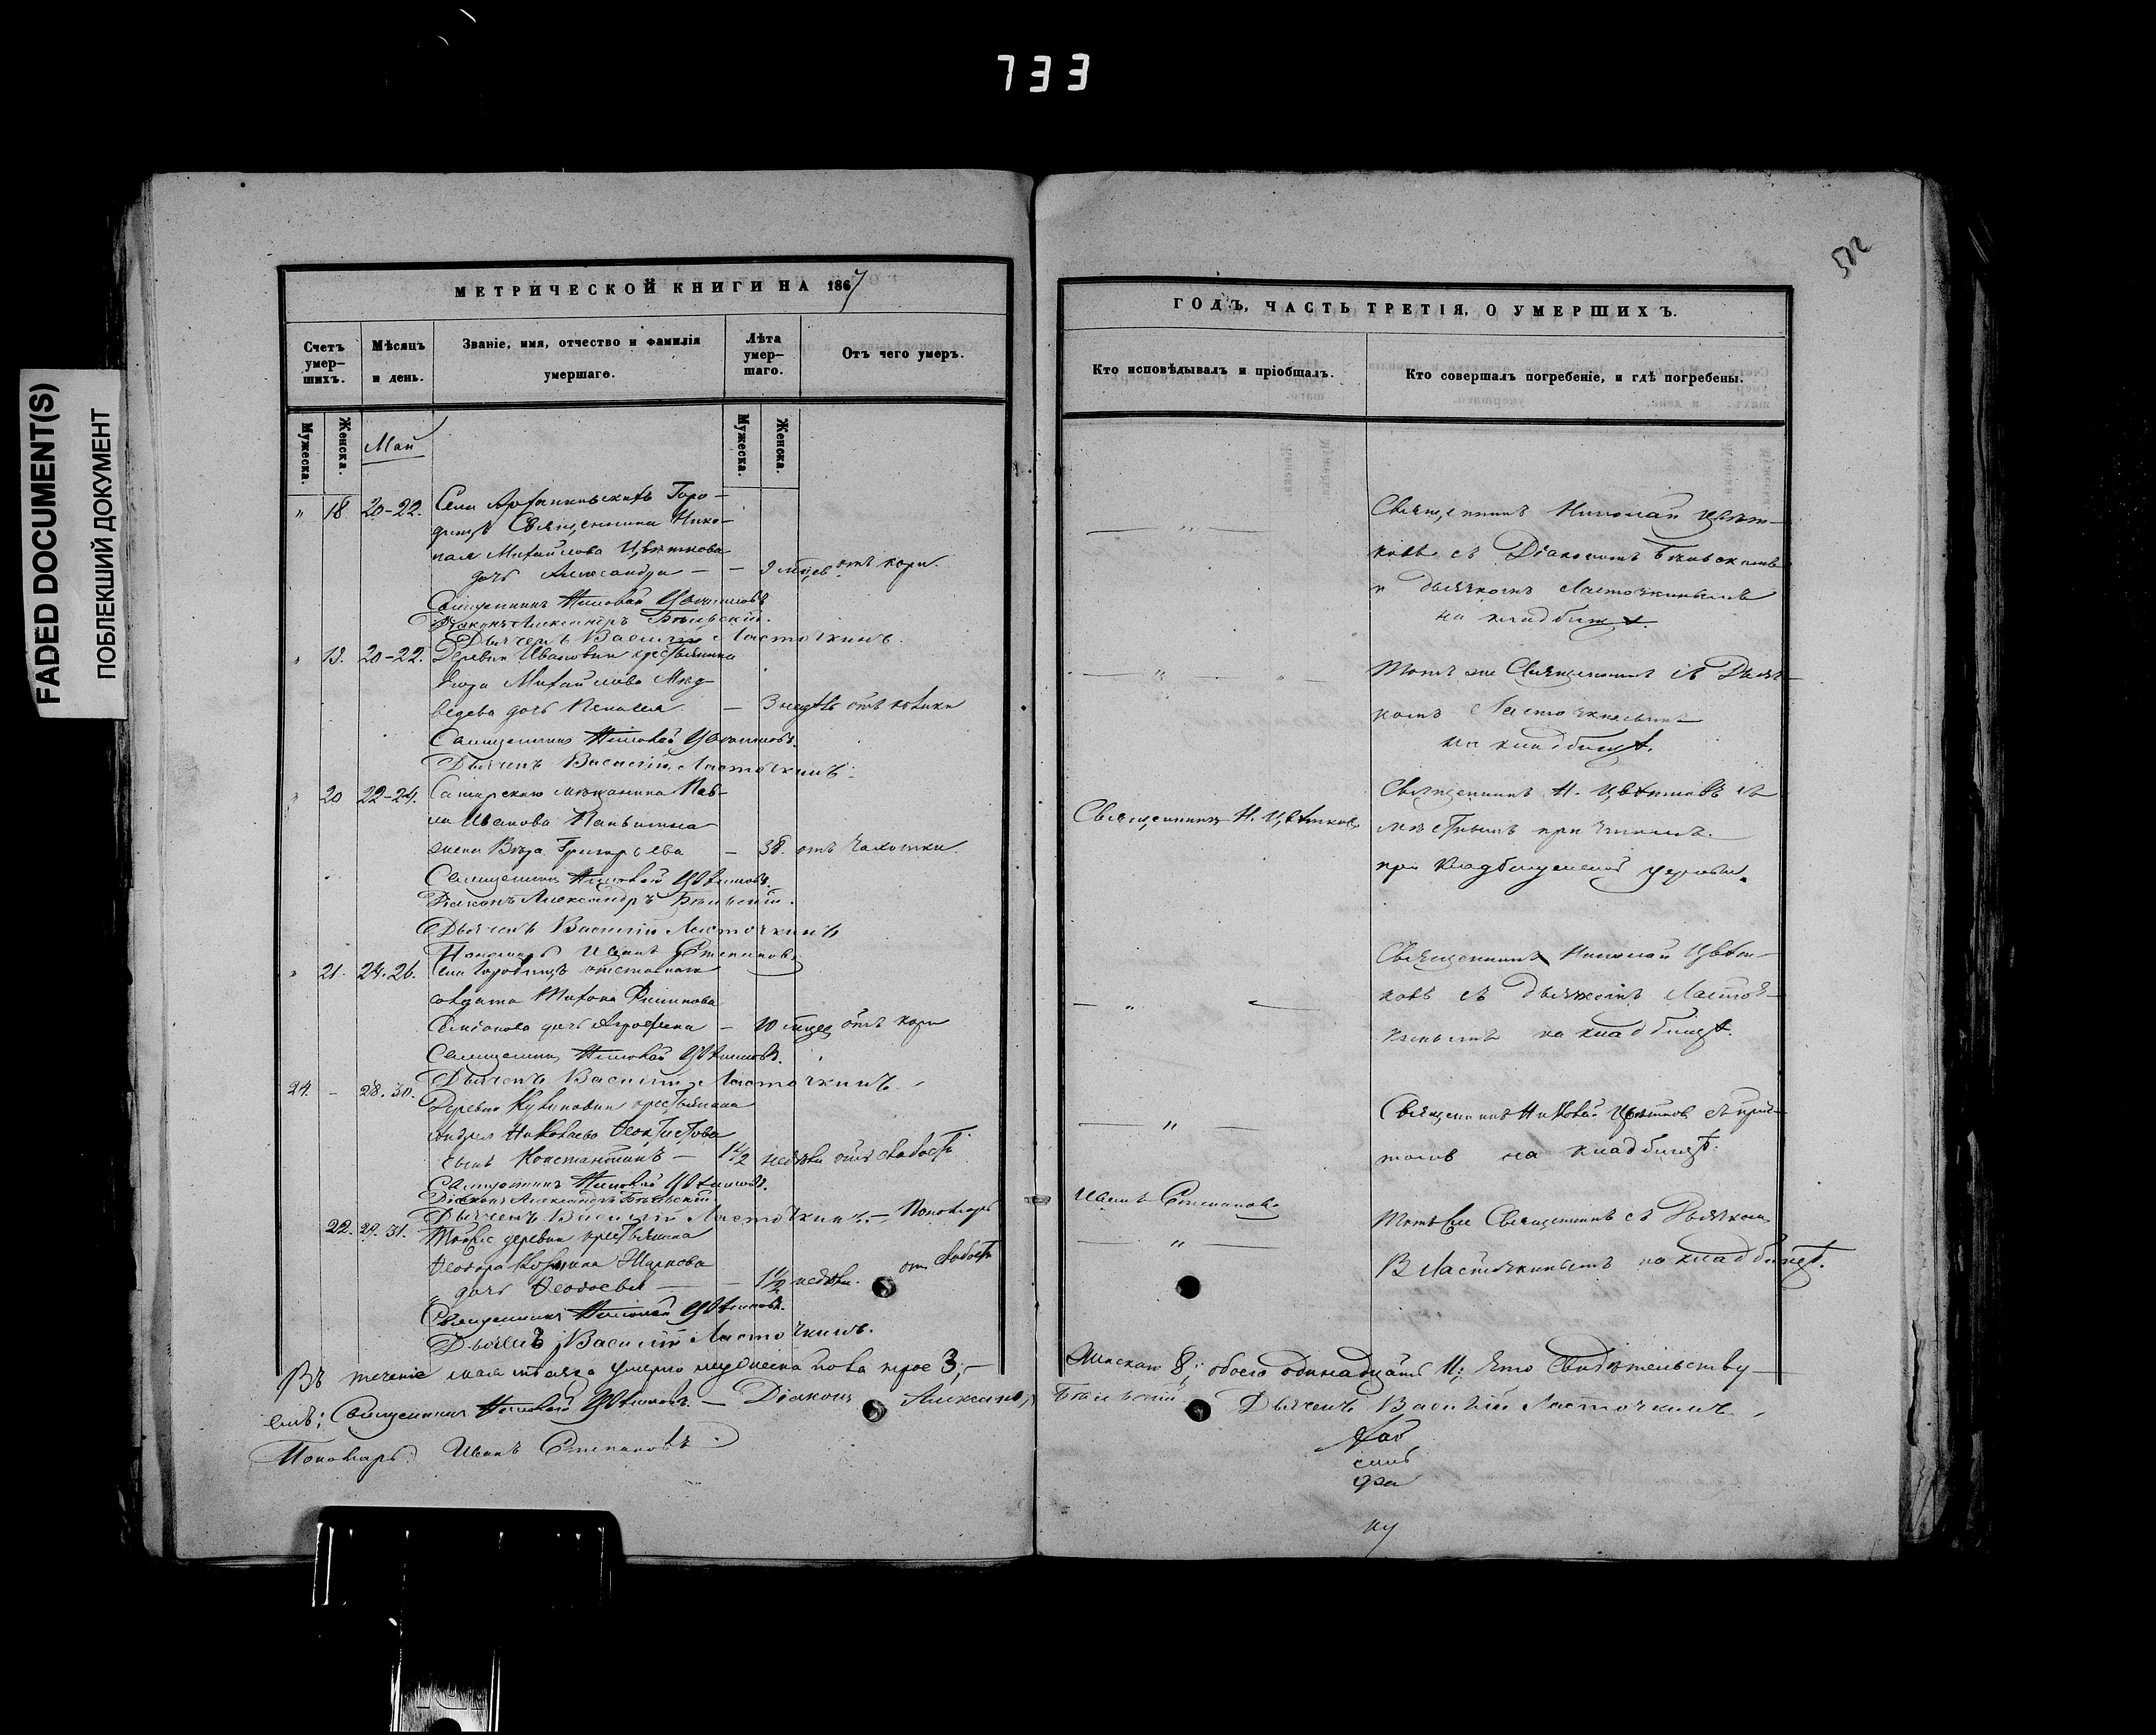 733
FADED DOCUMENT(S)
ПОБЛЕКШИЙ ДОКУМЕНТ
512
МЕТРИЧЕСКОЙ КНИГИ НА 1867
Счетъ умер-шихъ.
Мѣсяцъ и день.
Званіе, имя, отчество и фамилія умершаго.
Лѣта умер-шаго.
Отъ чего умеръ.
Мужеска.
Женска.
Май
Мужеска.
Женска.
18 20-22. Села Горо-
дищъ Священника Нико-
лая Михайлова Цвѣткова
дочь Александра — — 9 мѣсяцев отъ кори.
Священникъ Николай Цвѣтковъ
Діаконъ Александръ Бѣльскій.
Дьячекъ Василій Ласточкинъ.
19. 20-22. Деревни Ивановки крестьянина
Егора Михайлова Мед-
ведева дочь — 3 отъ
Священникъ Николай Цвѣтковъ.
Дьячекъ Василій Ласточкинъ.
20 22-24. мѣщанина Пав-
ла Иванова
жена Вѣра Григорьева — 38. отъ чахотки.
Священникъ Николай Цвѣтковъ.
Діаконъ Александръ Бѣльскій.
Дьячекъ Василій Ласточкинъ
Пономарь Иванъ Степановъ
21. 24.26. Села Городищъ отставнаго
солдата Тихона Филипова
Семіонова дочь — 10 отъ кори
Священникъ Николай Цвѣтковъ.
Дьячекъ Василій Ласточкинъ.
24. — 28.30. Деревни крестьянина
Андрея Николаева Феоктистова
сынъ Константинъ — 1 1/2 недѣли отъ слабости
Священникъ Николай Цвѣтковъ.
Діаконъ Александръ Бѣльскій.
Дьячекъ Василій Ласточкинъ. — Пономарь
22. 29.31. Тойже деревни крестьянина
Феодора
дочь Феодосья — — 1 1/2 недѣли. отъ слабости
Священникъ Николай Цвѣтковъ.
Дьячекъ Василій Ласточкинъ.
Въ теченіе мая мѣсяца умерло мужеска пола трое 3, —
емъ: Священникъ Николай Цвѣтковъ. — Діаконъ Александръ
Пономарь Иванъ Степановъ
ГОДЪ, ЧАСТЬ ТРЕТІЯ, О УМЕРШИХЪ.
Кто исповѣдывалъ и пріобщалъ.
Кто совершалъ погребеніе, и гдѣ погребены.
Священникъ Николай Цвѣт-
ковъ съ Діакономъ Бѣльскимъ
и дьячкомъ Ласточкинымъ
на кладбищѣ.
Тотъ же Священникъ съ Дьяч-
комъ Ласточкинымъ
на кладбищѣ.
Священникъ Н. Цвѣтковъ
Священникъ Н. Цвѣтковъ съ
мѣстнымъ причтомъ.
при кладбищенской церкви.
Священникъ Николай Цвѣт-
ковъ съ дьячкомъ Ласточ-
кинымъ на кладбищѣ.
Священникъ Николай Цвѣтков съ прич-
томъ на кладбищѣ.
Иванъ Степановъ
Тотъ же Священникъ съ Дьячкомъ
В. Ласточкинымъ на кладбищѣ.
Женскаго 8; обоего одинадцать 11; Что свидѣтельству-
Бѣльскій. Дьячекъ Василій Ласточкинъ.